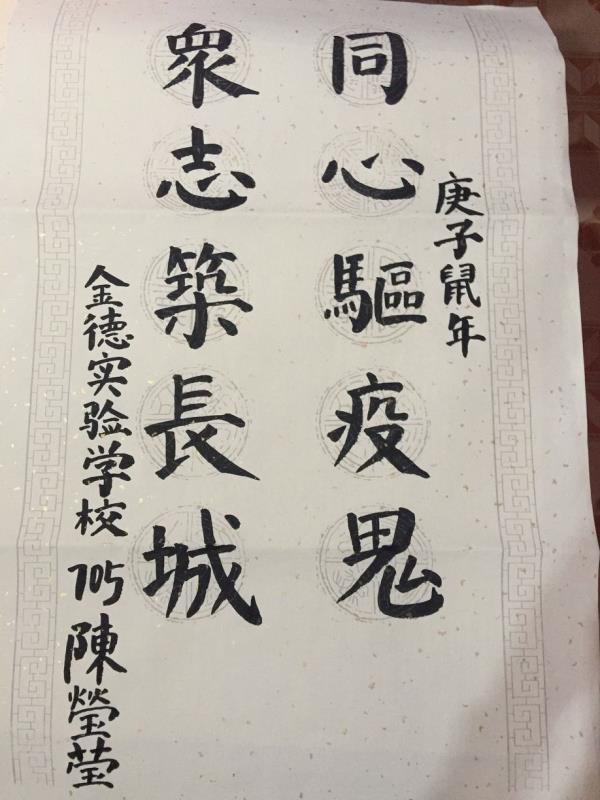 庚子鼠年
同心驅疫鬼
眾志築長城
金德实验学校 705 陳瑩莹